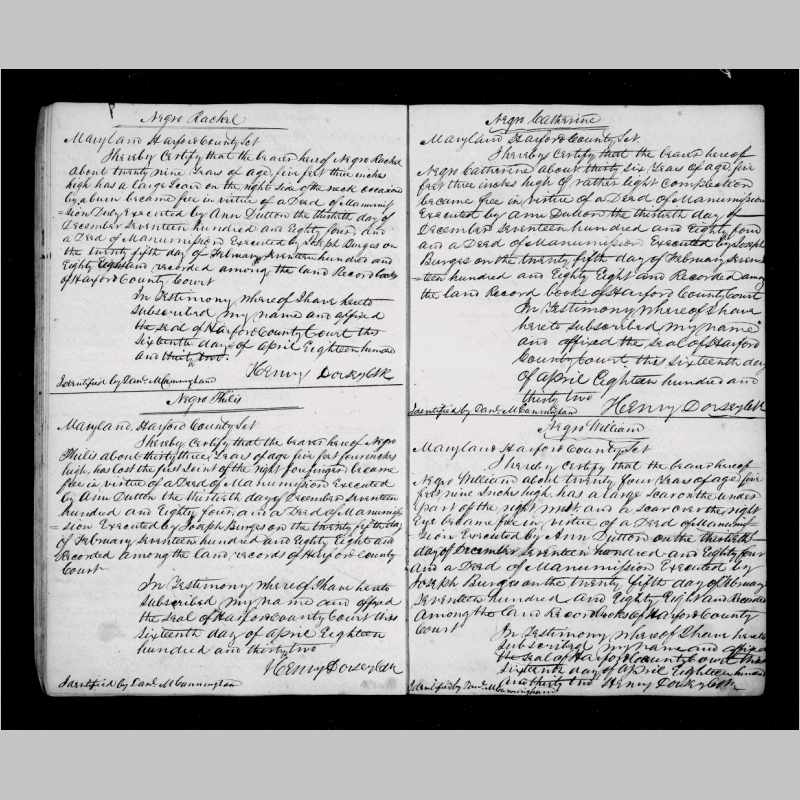 Negro Rachel
Maryland Harford County Sct
I hereby Certify that the bearer hereof Negro Rachel
about twenty nine Years of age five feet three inches
high has a large Scar on the right side of the neck occasiond
by a burn became free in virtue of a Deed of Manumis=
=sion Duly Executed by Ann Dutton the thirtieth day of
December Seventeen hundred and Eighty four, and
a Deed of Manumission Executed by Joseph Burges on
the twenty fifth day of February Seventeen hundred and
Eighty Eight and recorded among the land Record books
of Harford County Court
In Testimony whereof I have hereto
subscribed my name and affixed
the seal of Harford County Court this
Sixteenth day of April Eighteen hundred
and thirty two.
Henry Dorsey Clk
Identified by Danl. McCunningham
Negro Philis
Maryland, Harford County Sct
I hereby Certify that the bearer hereof Negro
Philis about thirty three Years of age five feet four inches
high, has lost the first Joint of the right forefinger became
free in virtue of a Deed of Manumission Executed
by Ann Dutton the thirtieth day of December Seventeen
hundred and Eighty four, and in a Deed of Manumis=
=sion Executed by Joseph Burges on the twenty fifth day
of February Seventeen hundred and Eighty Eight and
recorded among the land, records of Harford County
Court
In Testimony whereof I have hereto
subscribed my name and affixed
the Seal of Harford County Court this
Sixteenth day of April Eighteen
hundred and thirty two
Henry Dorsey Clk
Identified by Danl. McCunningham
Negro Catherine
Maryland Harford County Sct.
I hereby Certify that the bearer hereof
Negro Catherine about thirty six Years of age, five
feet three inches high of rather light Complection
became free in virtue of a Deed of Manumission
Executed by Ann Dutton the thirtieth day of
December Seventeen hundred and Eighty four
and a Deed of Manumission Executed by Joseph
Burges on the twenty fifth day of February Seven=
=teen hundred and Eighty Eight and Recorded among
the land Record books of Harford County Court
In Testimony whereof I have
hereto subscribed my name
and affixed the seal of Harford
County Court this sixteenth day
of April Eighteen hundred and
thirty two
Henry Dorsey Clk
Identified by Danl. McCunningham
Negro William
Maryland Harford County Sct
I hereby Certify that the bearer hereof
Negro William about twenty four Years of age five
feet nine Inches high, has a large scar on the under
part of the right wrist and a scar over the right
Eye became free in virtue of a Deed of Manumis=
=sion Executed by Ann Dutton on the thirtieth
day of December Seventeen hundred and Eighty four
and a Deed of Manumission Executed by
Joseph Burges on the twenty fifth day of February
Seventeen hundred and Eighty Eight and Recorded
among the land Record books of Harford County
Court
In Testimony whereof I have hereto
subscribed my name and affixed
the seal of Harford County Court this
Sixteenth day of April Eighteen hundred
and thirty two Henry Dorsey Clk
Identified by Danl. McCunningham